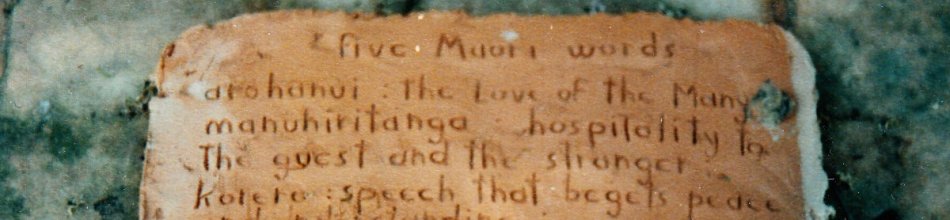 five Maori words
arohanui : the Love of the Many
manuhiritanga : hospitality to
The guest and the stranger
Korero : speech that begets peace
and understanding